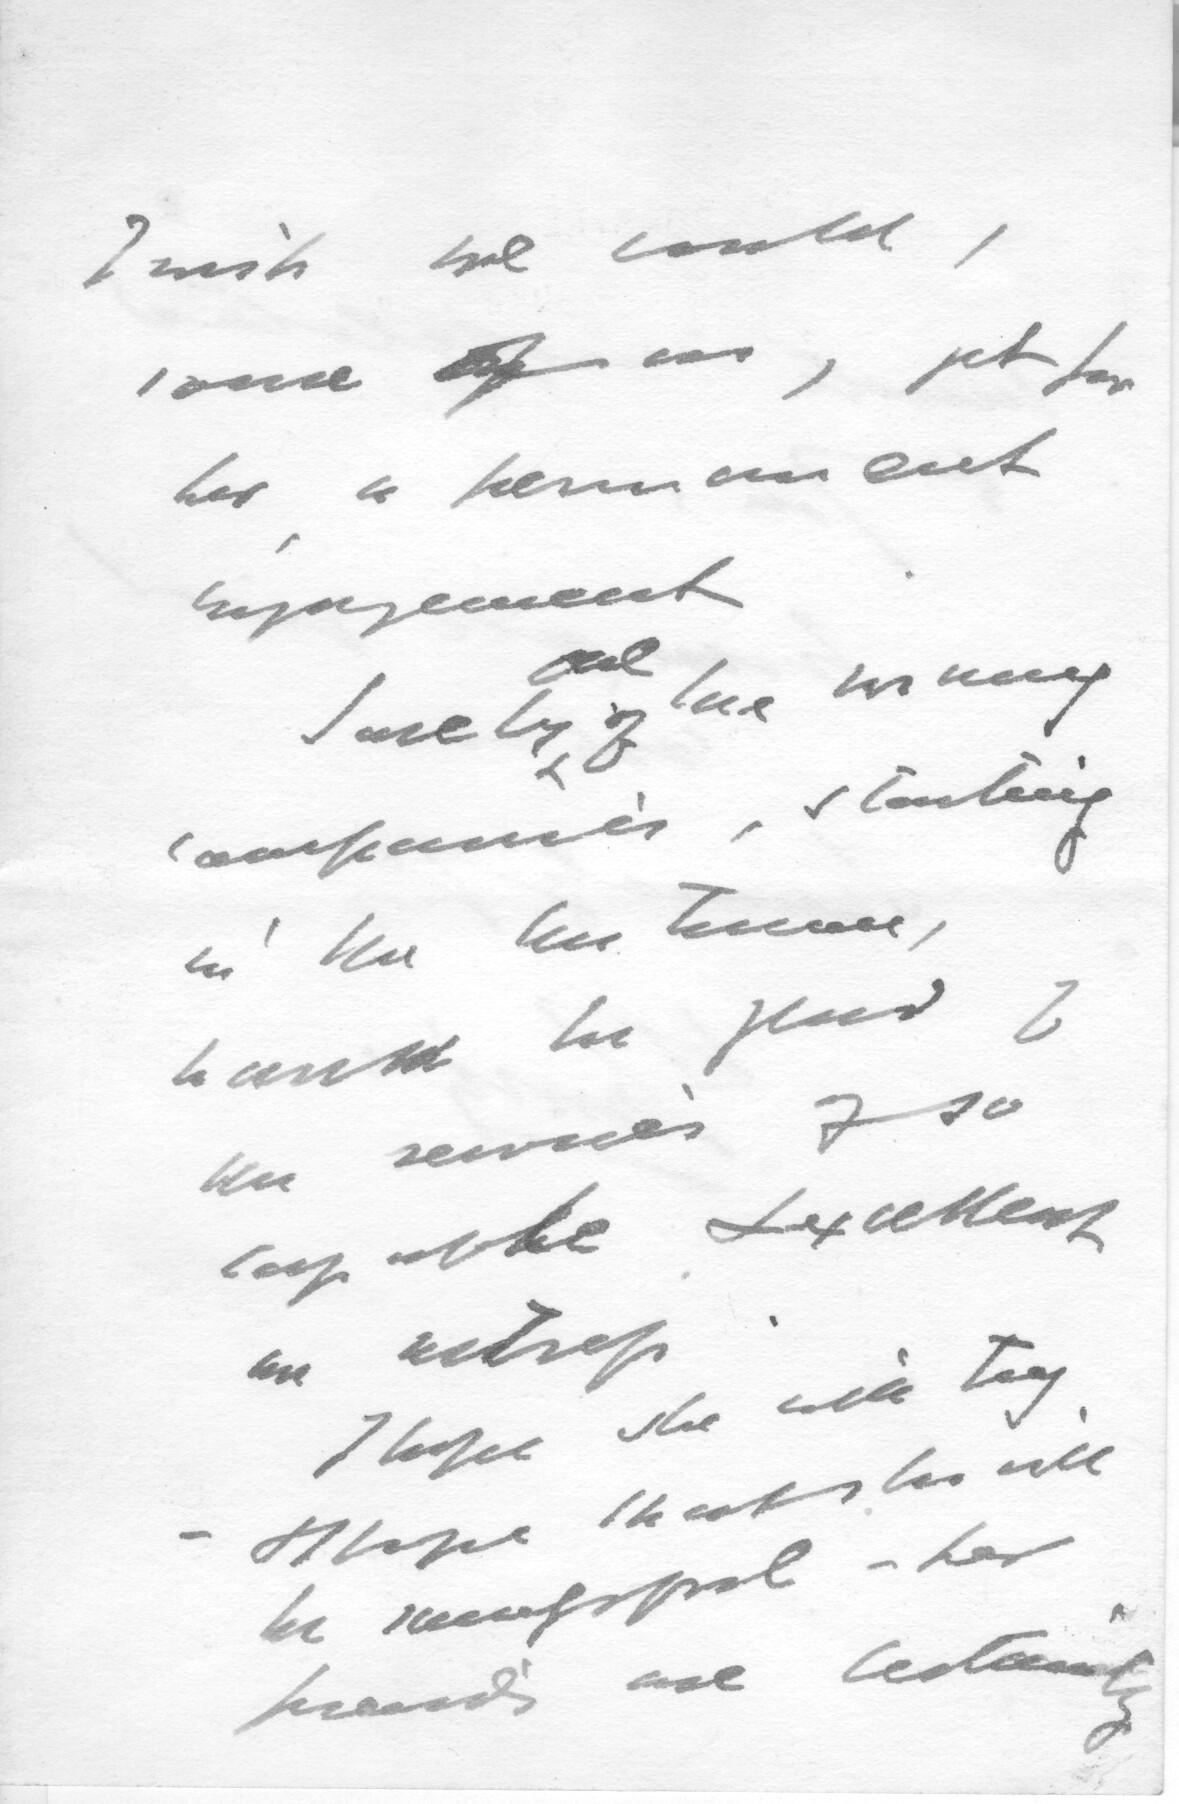 I wish we could,
some of us, get for
her a permanent
engagement
Surely one of the many
companies, starting
in the Autumn,
would be glad of
the services of so
capable & excellent
an actress
I hope she will try
- & I hope that she will
be successful - her
friends are certainly